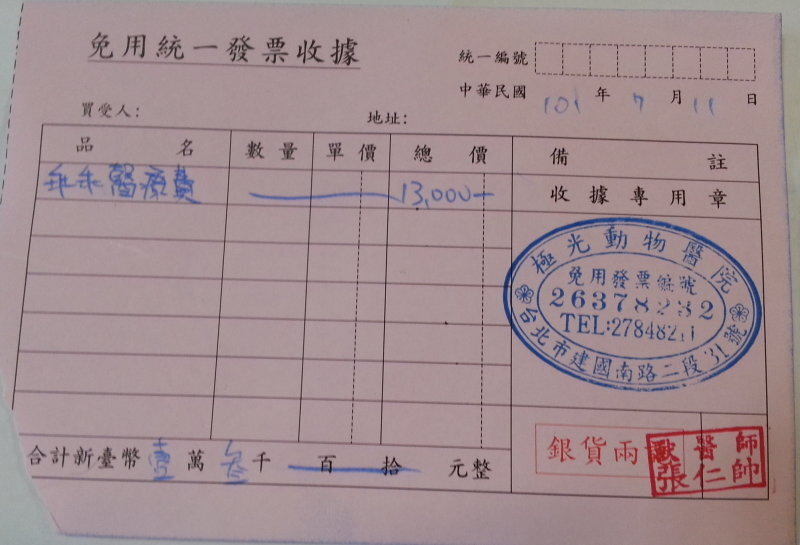 免用統一發票收據
統一編號
中華民國 101 年 7 月 11 日
買受人:
地址:
品名 數量 單價 總價 備註
乖乖醫療費 13,000
收據專用章
極光動物醫院
免用發票編號
26378232
TEL:2784821
台北市建國南路二段31號
銀貨兩
獸醫師
張仁帥
合計新臺幣壹萬叁千 百 拾 元整